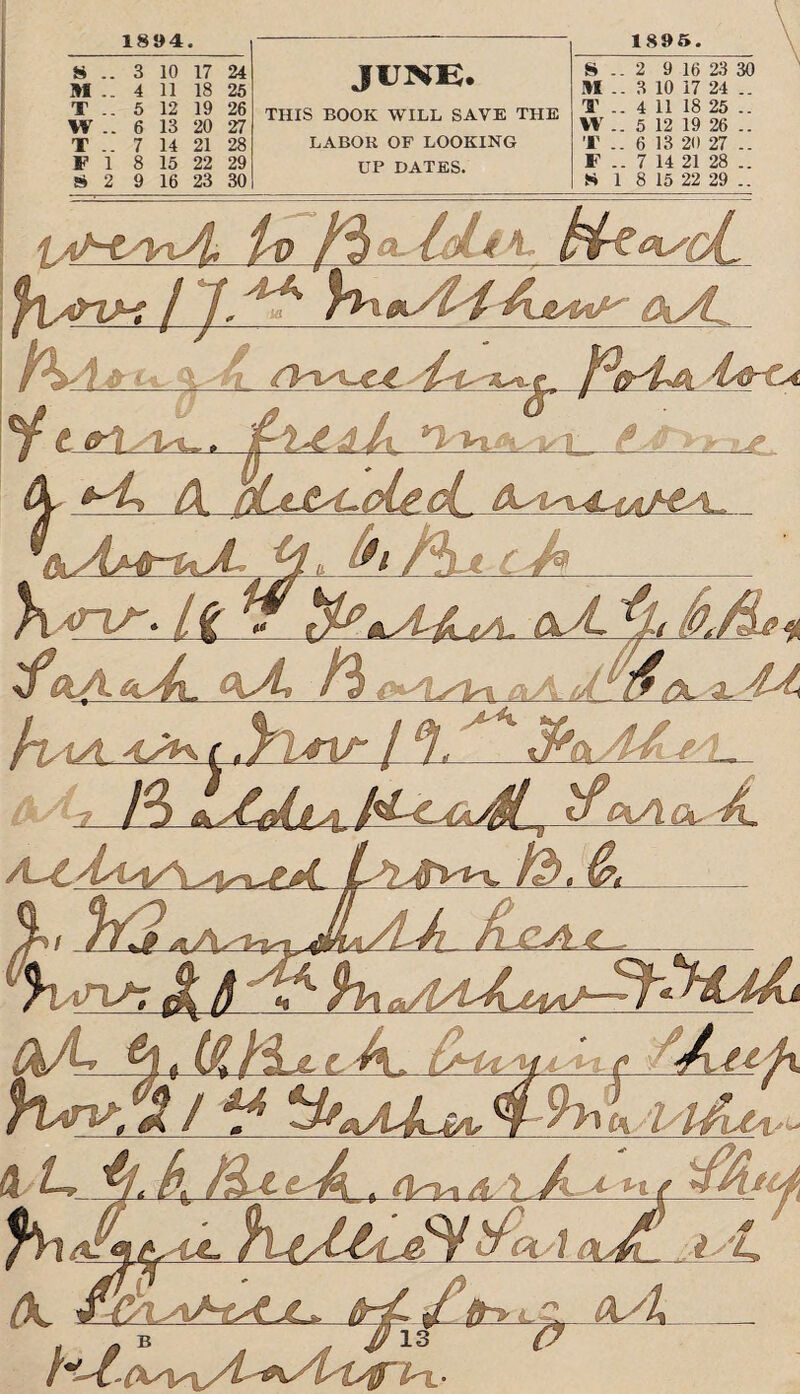 1894.
S .. 3 10 17 24
M .. 4 11 18 25
T .. 5 12 19 26
W .. 6 13 20 27
T .. 7 14 21 28
F 1 8 15 22 29
S 2 9 16 23 30
JUNE.
THIS BOOK WILL SAVE THE
LABOR OF LOOKING
UP DATES.
1895.
S .. 2 9 16 23 30
M .. 3 10 17 24 ..
T .. 4 11 18 25 ..
W .. 5 12 19 26 ..
T .. 6 13 20 27 ..
F .. 7 14 21 28 ..
S 1 8 15 22 29 ..
went to Balder Head
Nov. 17.th Matthew at
Plough meeting Potatoes
& corn. fresh man come
got a decided answer
about G. C. Beck
Nov. 18th Father at G. C. Bec
Sarah at Barnard Castle
hiring. Nov 19.th Father
at Balder Head, Sarah
returned from B. C.
J. Wearmouth here
Nov. 20th Matthew & Fathe
at G. C. Beck buying Sheep
Nov. 21th Father & Matthew
at G. C. Beck, marking Sheep
Maggie Nellie & Sarah at
a Service of Song at
Plantation.
B 13